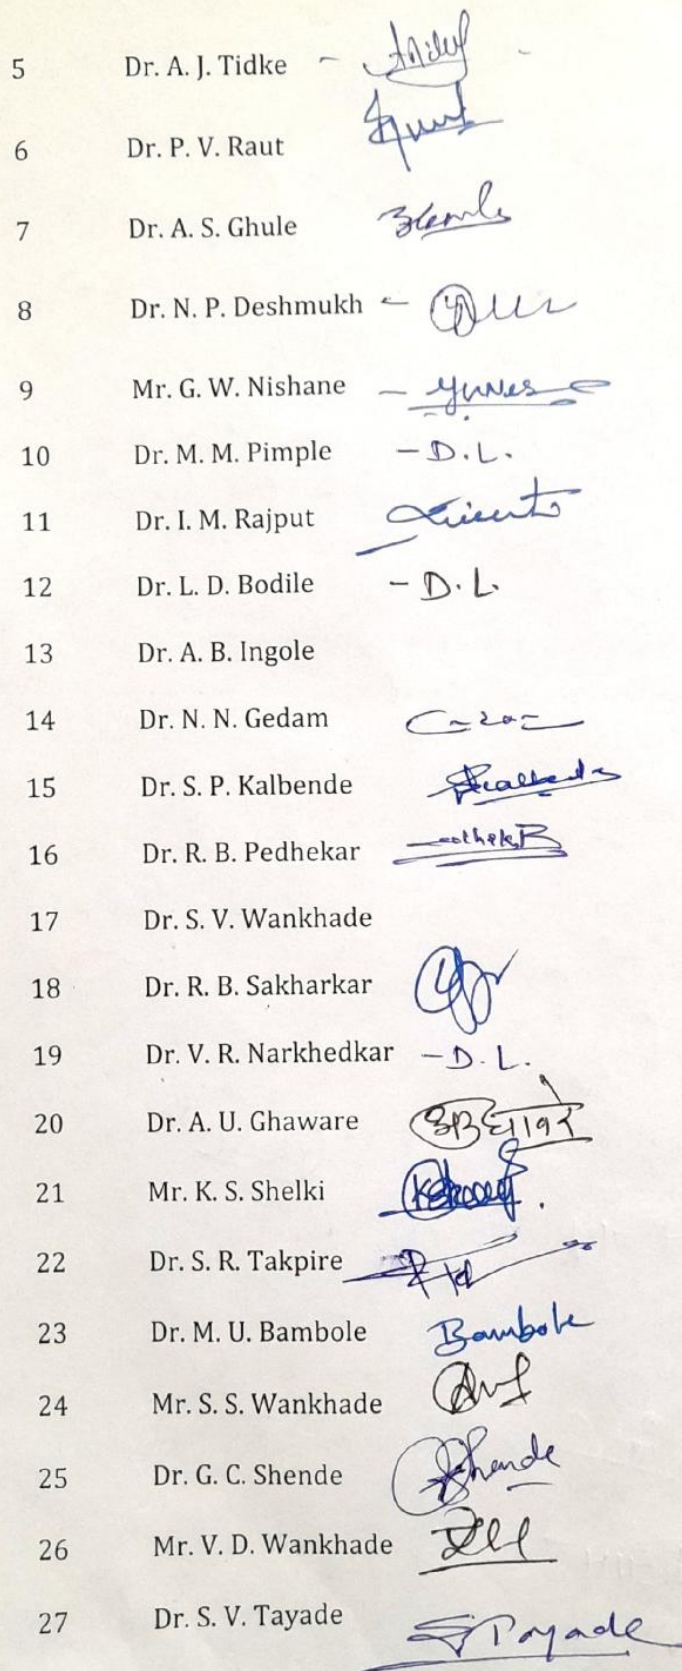 5 Dr. A. J. Tidke -
6 Dr. P. V. Raut
7 Dr. A. S. Ghule
8 Dr. N. P. Deshmukh -
9 Mr. G. W. Nishane -
10 Dr. M. M. Pimple - D.L.
11 Dr. I. M. Rajput
12 Dr. L. D. Bodile - D.L.
13 Dr. A. B. Ingole
14 Dr. N. N. Gedam
15 Dr. S. P. Kalbende
16 Dr. R. B. Pedhekar
17 Dr. S. V. Wankhade
18 Dr. R. B. Sakharkar
19 Dr. V. R. Narkhedkar - D.L.
20 Dr. A. U. Ghaware
21 Mr. K. S. Shelki
22 Dr. S. R. Takpire
23 Dr. M. U. Bambole Bambole
24 Mr. S. S. Wankhade
25 Dr. G. C. Shende Shende
26 Mr. V. D. Wankhade
27 Dr. S. V. Tayade Tayade